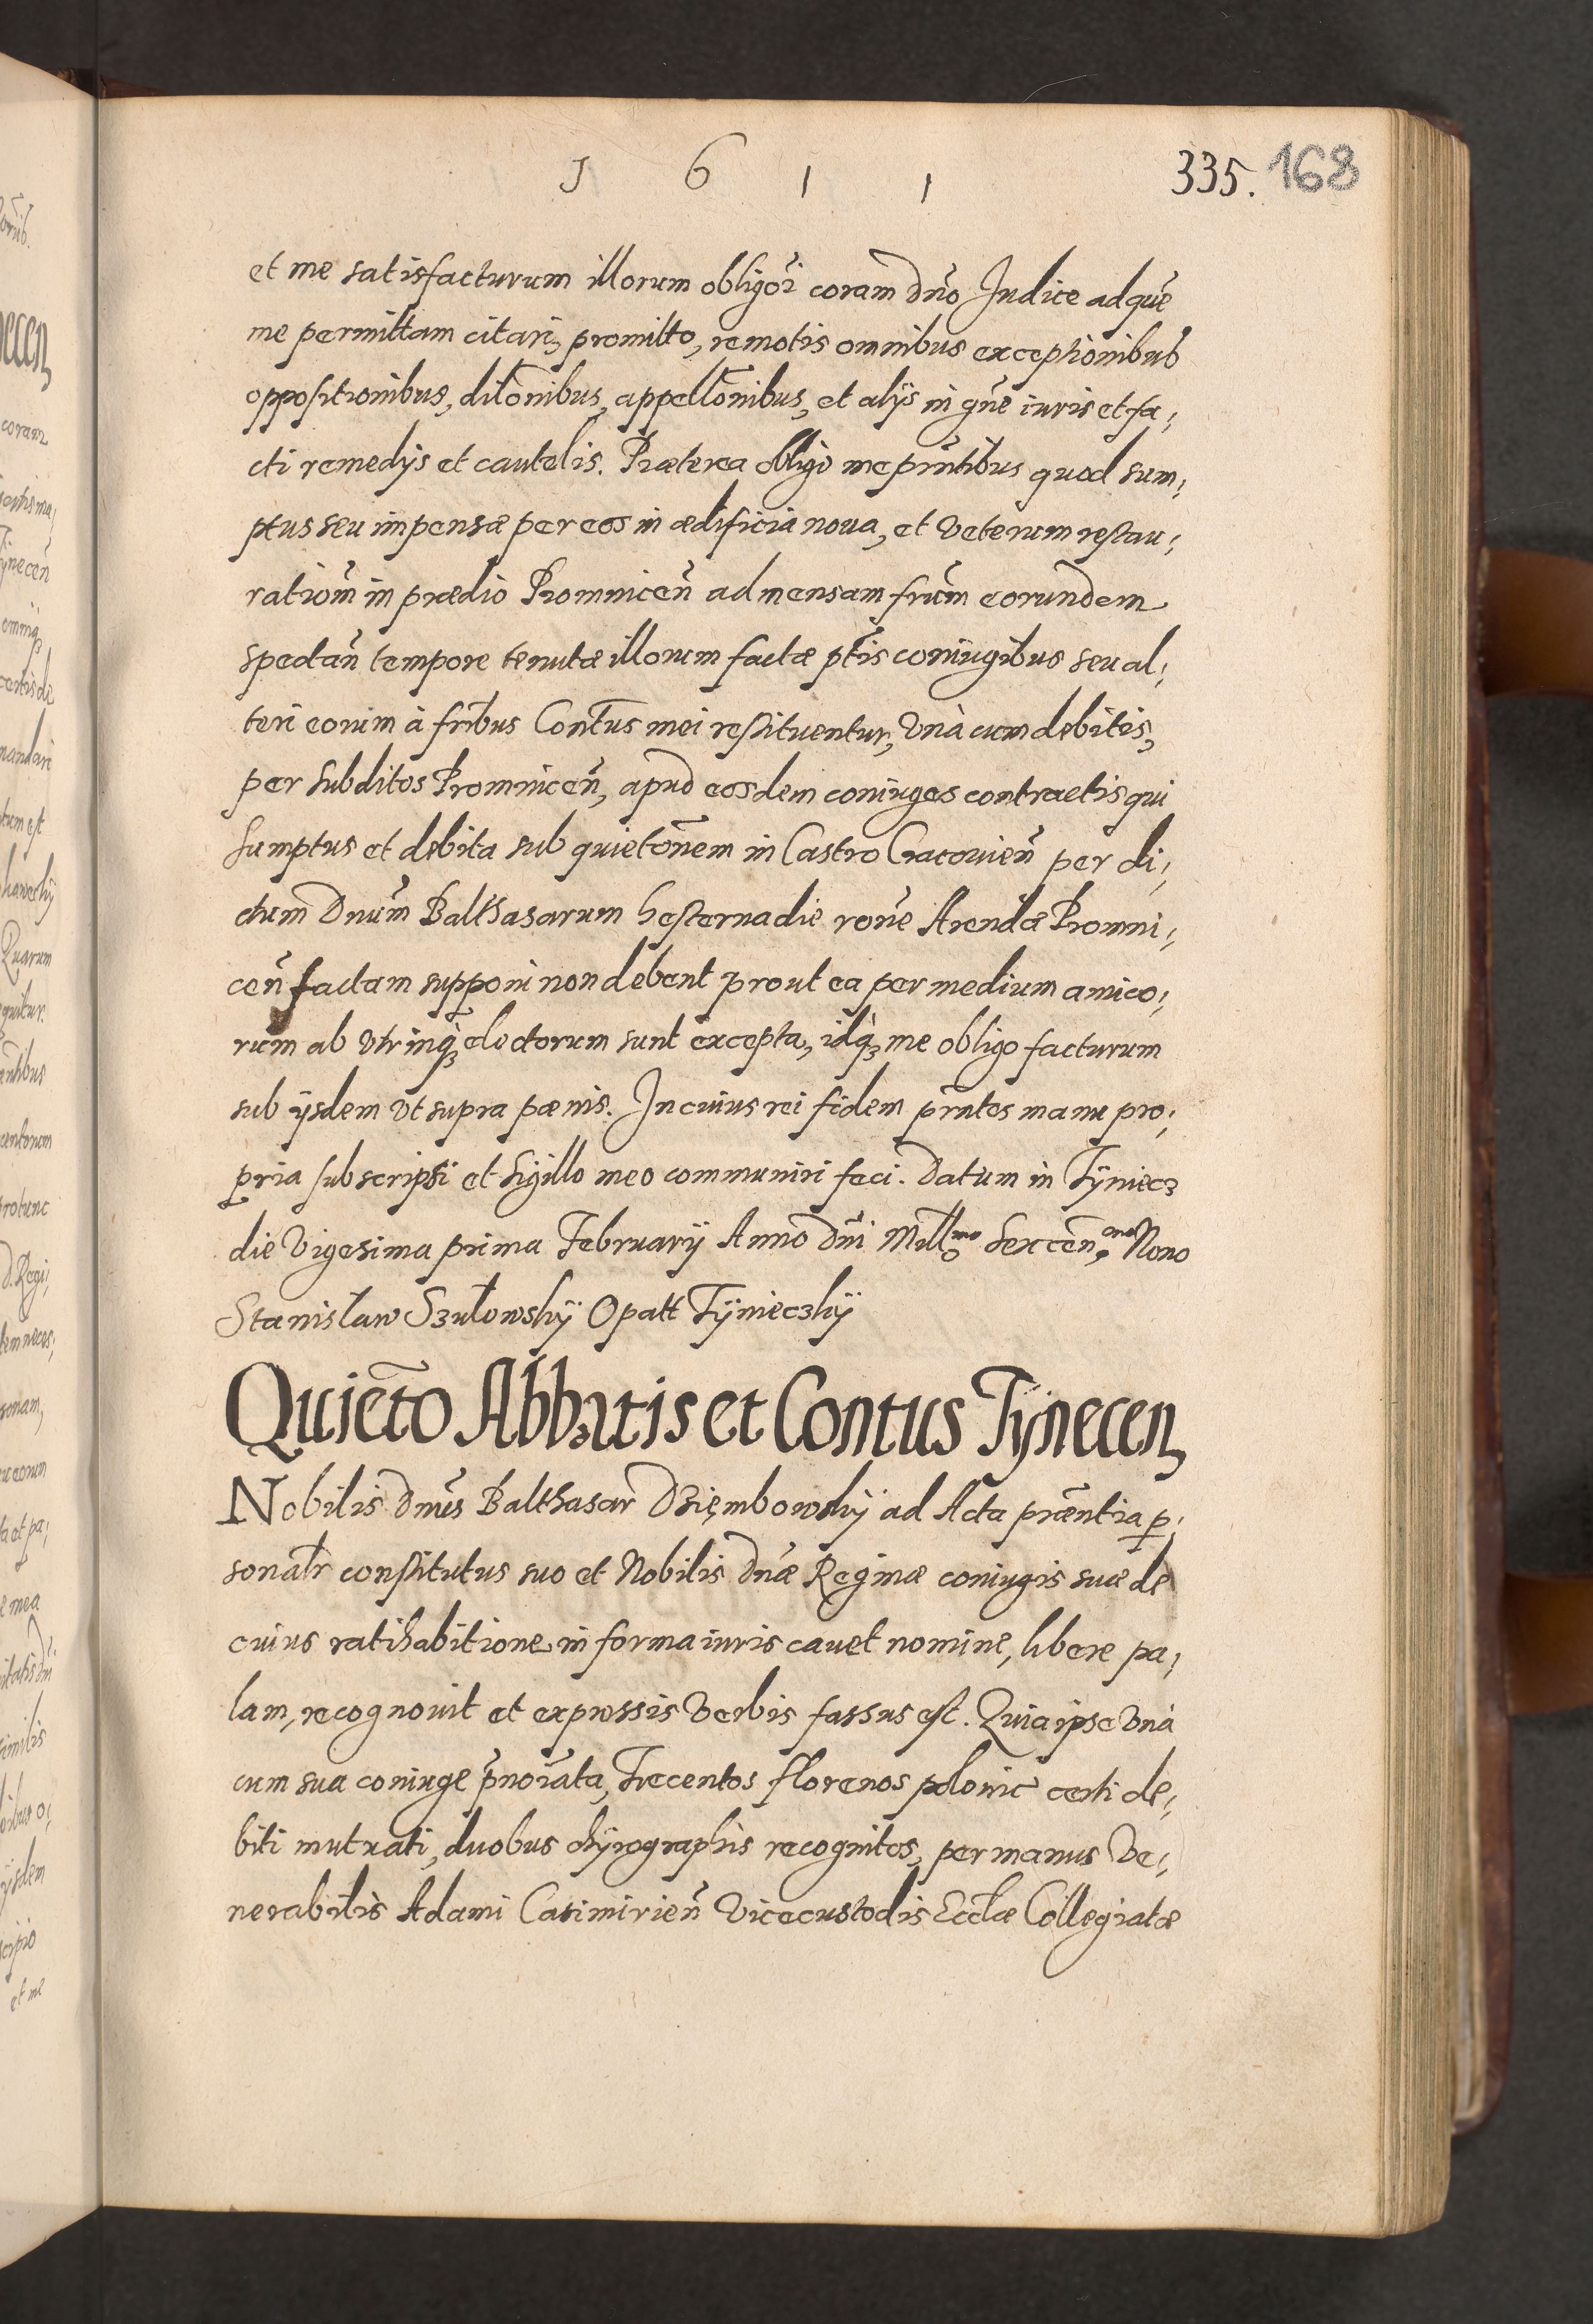 1 6 1 1
335. 168
et me satisfacturum illorum obligõri coram Dño Judice ad quẽ
me permittam citari, promitto, remotis omnibus exceptionibus
oppositionibus, dilõnibus, appellõnibus, et alijs in gñe iuris et fa,
cti remedijs et cautelis. Præterea obligo me pñtibus quod sum,
ptus seu impensæ per eos in ædificia noua, et veterum restau,
rationẽ in prædio Promnicen̄ ad mensam frũm eorundem
spectan̄ tempore tenutæ illorum factæ ptis coniugibus seu al,
teri eorum à fribus Contus mei restituentur, vnà cum debitis,
per subditos Promnicen̄, apud eosdem coniuges contractis qui
sumptus et debita sub quietõnem in Castro Cracouien̄ per di,
ctum Dnũm Balthasarum hesterna die rõne Arendæ Promni,
cen̄ factam supponi non debent prout ea per medium amico,
rum ab vtrinq̃ electorum sunt excepta, idq̃ me obligo facturum
sub ijsdem vt supra pœnis. In cuius rei fidem pñtes manu pro,
pria subscripsi et sigillo meo communiri feci. Datum in Tÿniecz
die Vigesima prima Februarij Anno Dñi Millmo Sexcen̄mo Nono
Stanisław Szułowskÿ Opatt Tÿnieczkÿ
Quietõ Abbatis et Contus Tÿnecen
Nobilis Dnũs Balthasar Dzięmbowskÿ ad Acta præntia p,
sonalr constitutus suo et Nobilis Dnæ Reginæ coniugis suæ de
cuius ratihabitione in forma iuris cauet nomine, libere pa,
lam, recognouit et expressis verbis fassus est. Quia ipse vnà
cum sua coniuge p̃nõiata, Trecentos florenos polonic certi de,
biti mutuati, duobus chÿrographis recognitos, per manus Ve,
nerabilis Adami Casimirien̄ Vicecustodis Ecclæ Collegiatæ